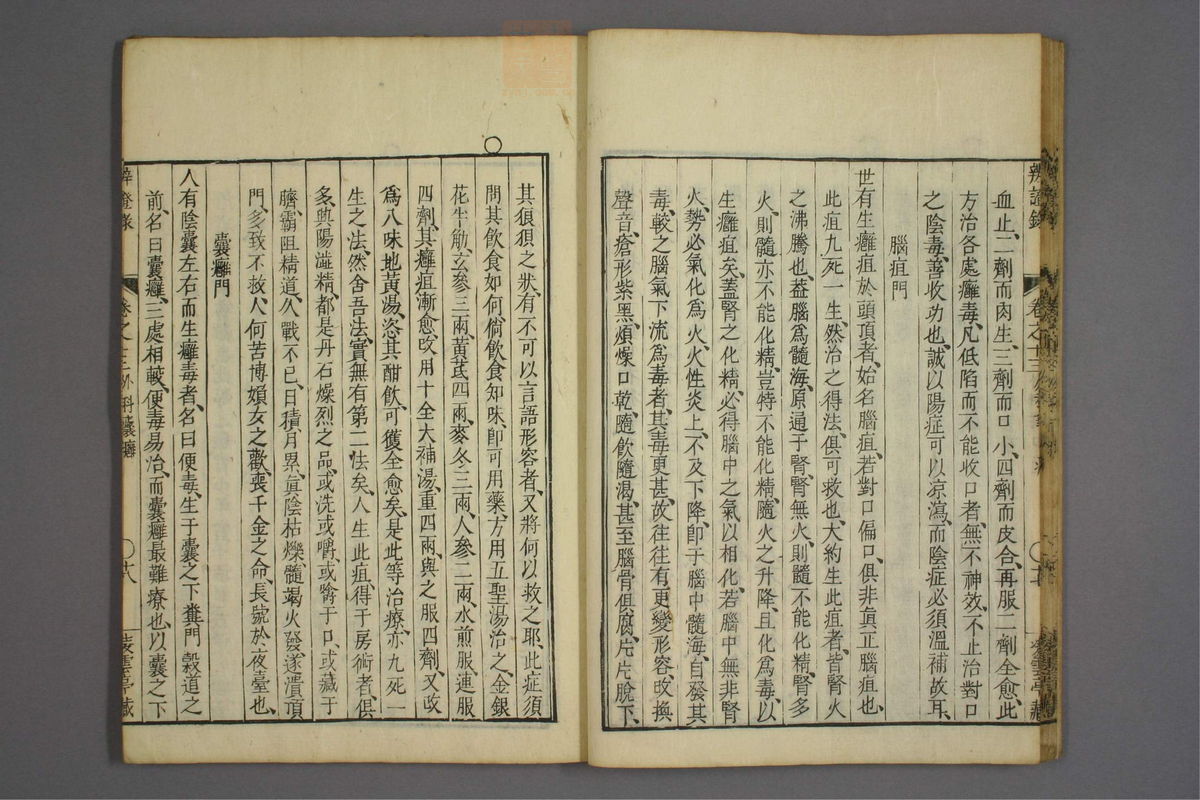 血止、二劑而肉生、三劑而口小、四劑而皮合、再服二劑全愈、此
方治各處癰毒、凡低陷而不能收口者、無不神效、不止治對口
之陰毒、善收功也、誠以陽症可以凉瀉、而陰症必須溫補故耳、
腦疽門
世有生癰疽於頭頂者、始名腦疽、若對口偏口、俱非眞正腦疽也、
此疽九死一生、然治之得法、俱可救也、大約生此疽者、皆腎火
之沸騰也、葢腦爲髓海、原通于腎、腎無火、則髓不能化精、腎多
火、則髓亦不能化精、豈特不能化精、隨火之升降、且化爲毒、以
生癰疽矣、蓋腎之化精、必得腦中之氣以相化、若腦中無非腎
火、勢必氣化爲火、火性炎上、不及下降、卽于腦中髓海、自發其
毒、較之腦氣下流爲毒者、其毒更甚、故往往有更變形容、改換
聲音、瘡形紫黑、煩燥口乾、隨飲隨渴、甚至腦骨俱腐、片片脫下、
其狽狽之狀、有不可以言語形容者、又將何以救之耶、此症須
問其飲食如何、倘飲食知味、卽可用藥、方用五聖湯治之、金銀
花半觔、玄參三兩、黃芪四兩、麥冬三兩、人參二兩、水煎服、連服
四劑、其癰疽漸愈、改用十全大補湯、重四兩、與之服四劑、又改
爲八味地黃湯、恣其酣飲、可獲全愈矣、是此等治療、亦九死一
生之法、然舍吾法、實無有第二法矣、人生此疽、得于房術者、俱
多、興陽澁精、都是丹石燥烈之品、或洗或嚼、或噙于口、或藏于
臍、霸阻精道、久戰不已、日積月累、眞陰枯爍、髓竭火發、遂潰頂
門、多致不救、人何苦博嬪女之歡、喪千金之命、長號於夜臺也、
囊癰門
人有陰囊左右而生癰毒者、名曰便毒、生于囊之下糞門榖道之
前、名曰囊癰、三處相較、便毒易治、而囊癰最難療也、以囊之下
卷之十三
卷之十三外科囊癰